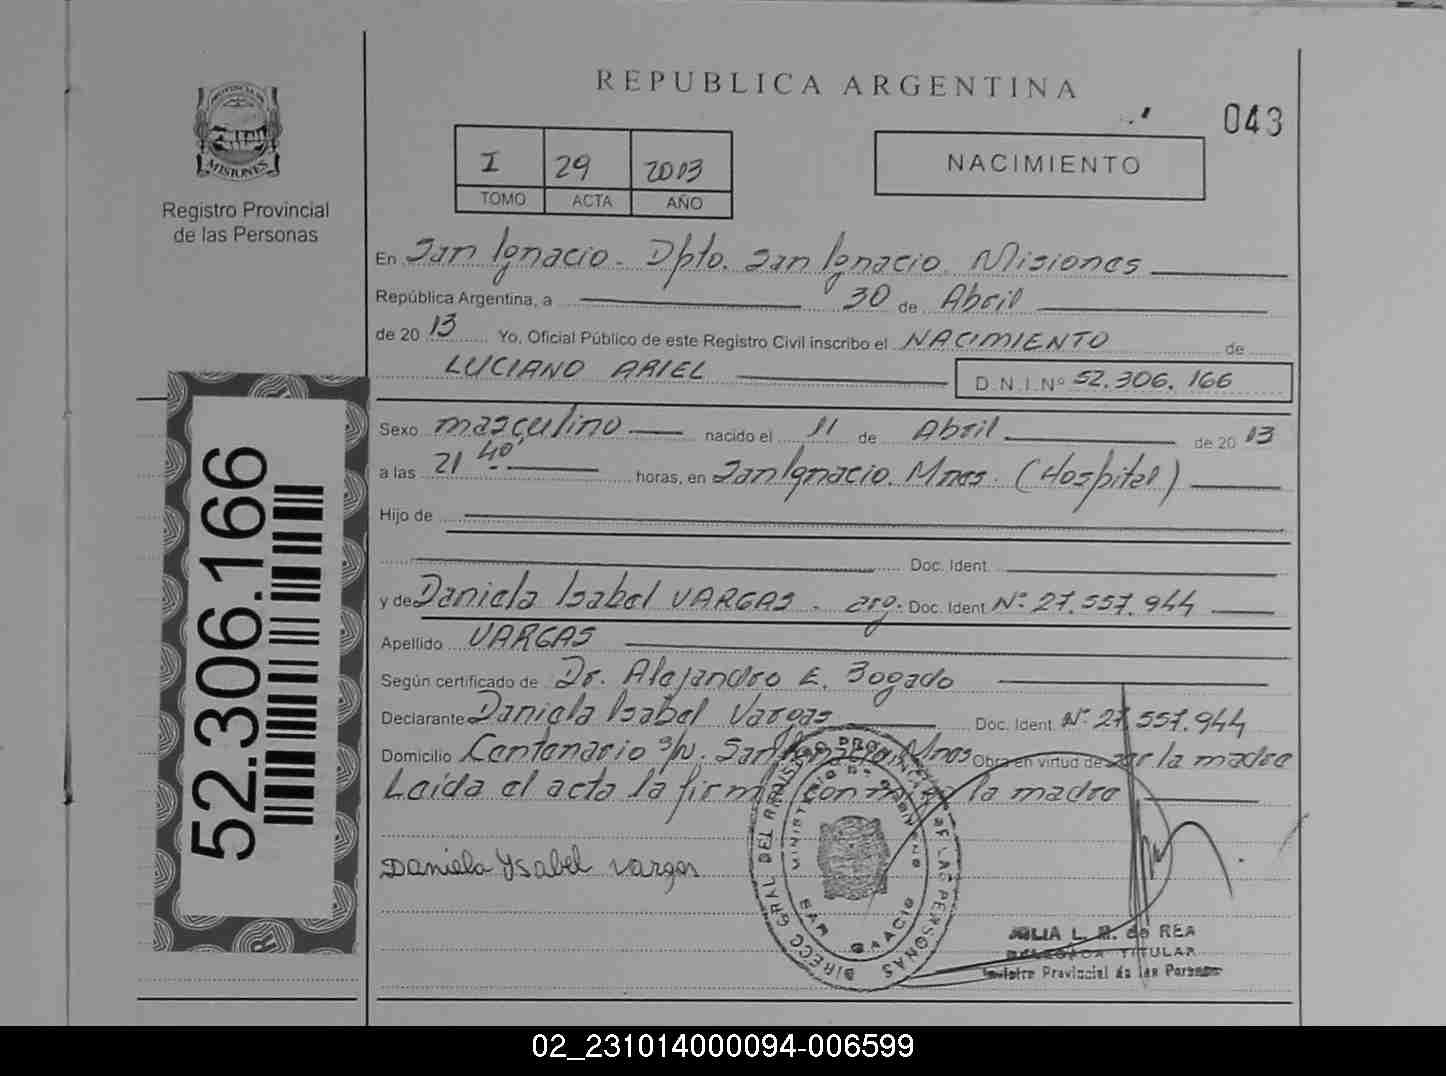 REPUBLICA ARGENTINA
043
PROVINCIA DE
MISIONES
Registro Provincial
de las Personas
I 29 2013
TOMO ACTA AÑO
NACIMIENTO
En San Ignacio. Dpto. San Ignacio. Misiones
República Argentina, a 30 de Abril
de 20 13 Yo, Oficial Público de este Registro Civil inscribo el NACIMIENTO de
LUCIANO ARIEL D.N.I.Nº 52.306.166
Sexo masculino nacido el 11 de Abril de 20 13
a las 21 40 horas, en San Ignacio. Mnes. (Hospital)
Hijo de
Doc. Ident.
y de Daniela Isabel VARGAS. arg. Doc. Ident. Nº 27.557.944
Apellido VARGAS
Según certificado de Dr. Alejandro E. Bogado
Declarante Daniela Isabel Vargas Doc. Ident. Nº 27.557.944
Domicilio Centenario s/n. San Ignacio. Mnes Obra en virtud de ser la madre
Leída el acta la firma conmigo la madre
Daniela Ysabel vargas
JULIA L. R. de REA
DELEGADA TITULAR
Registro Provincial de las Personas
52.306.166
02_231014000094-006599